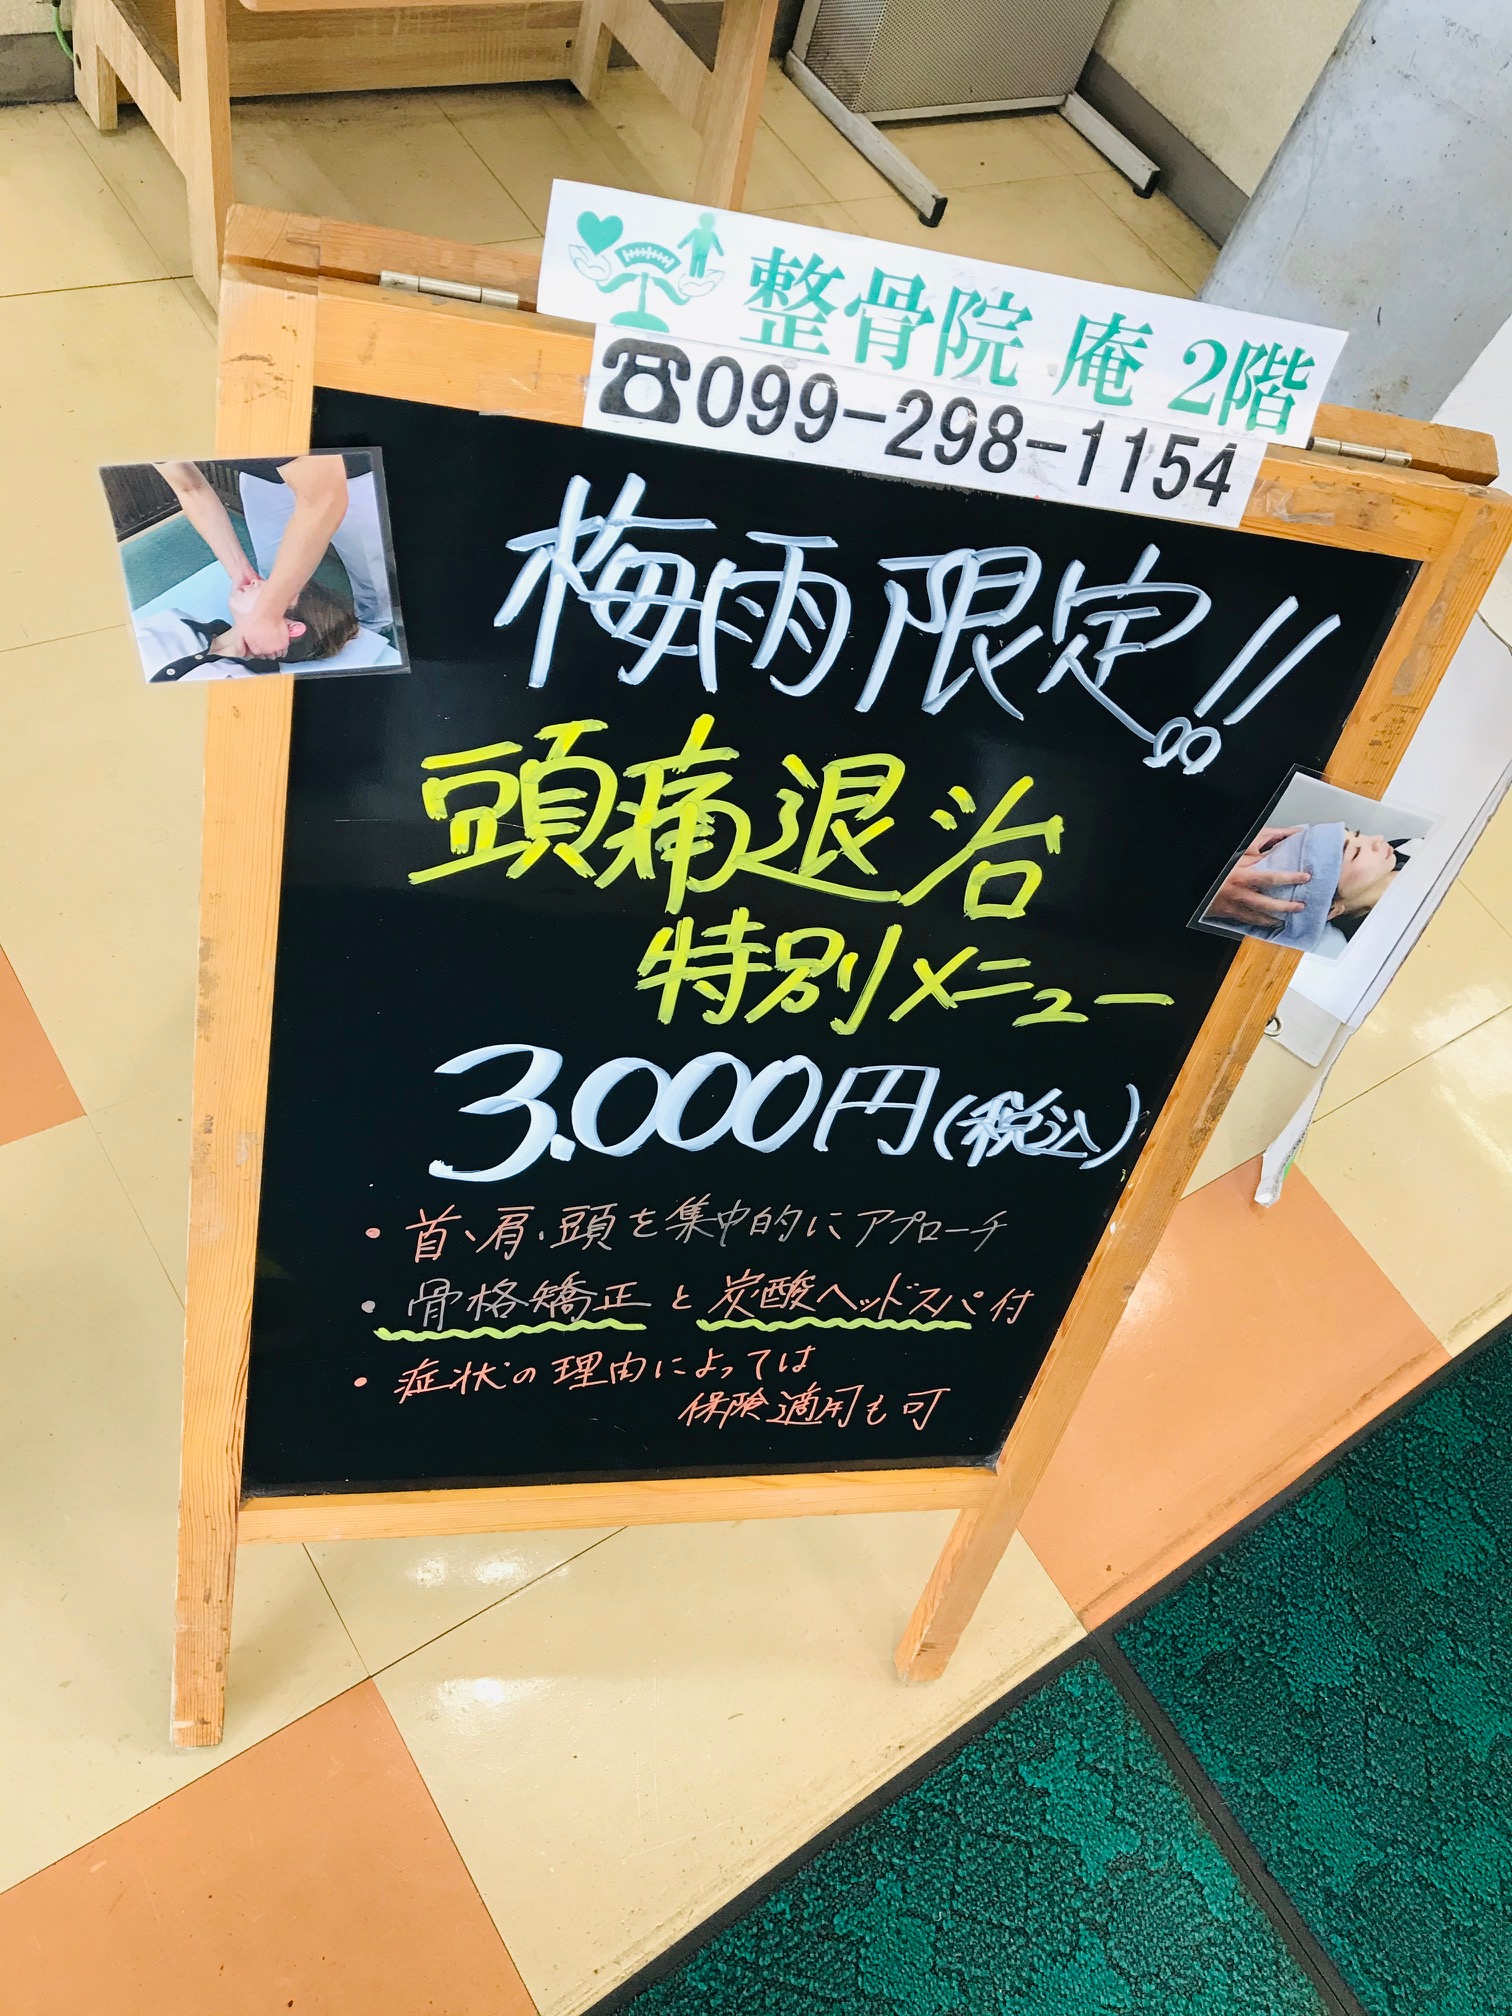 整骨院 庵 2階
☎099-298-1154
梅雨限定!!
頭痛退治
特別メニュー
3.000円(税込)
・首、肩、頭を集中的にアプローチ
・骨格矯正と炭酸ヘッドスパ付
・症状の理由によっては
保険適用も可